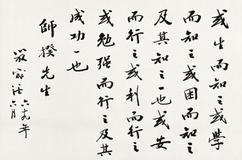 或生而知之或學
而知之或困而知之
及其知之一也或安
而行之或利而行之
或勉强而行之及其
成功一也
師揆先生
嚴家淦
六十九年
六月